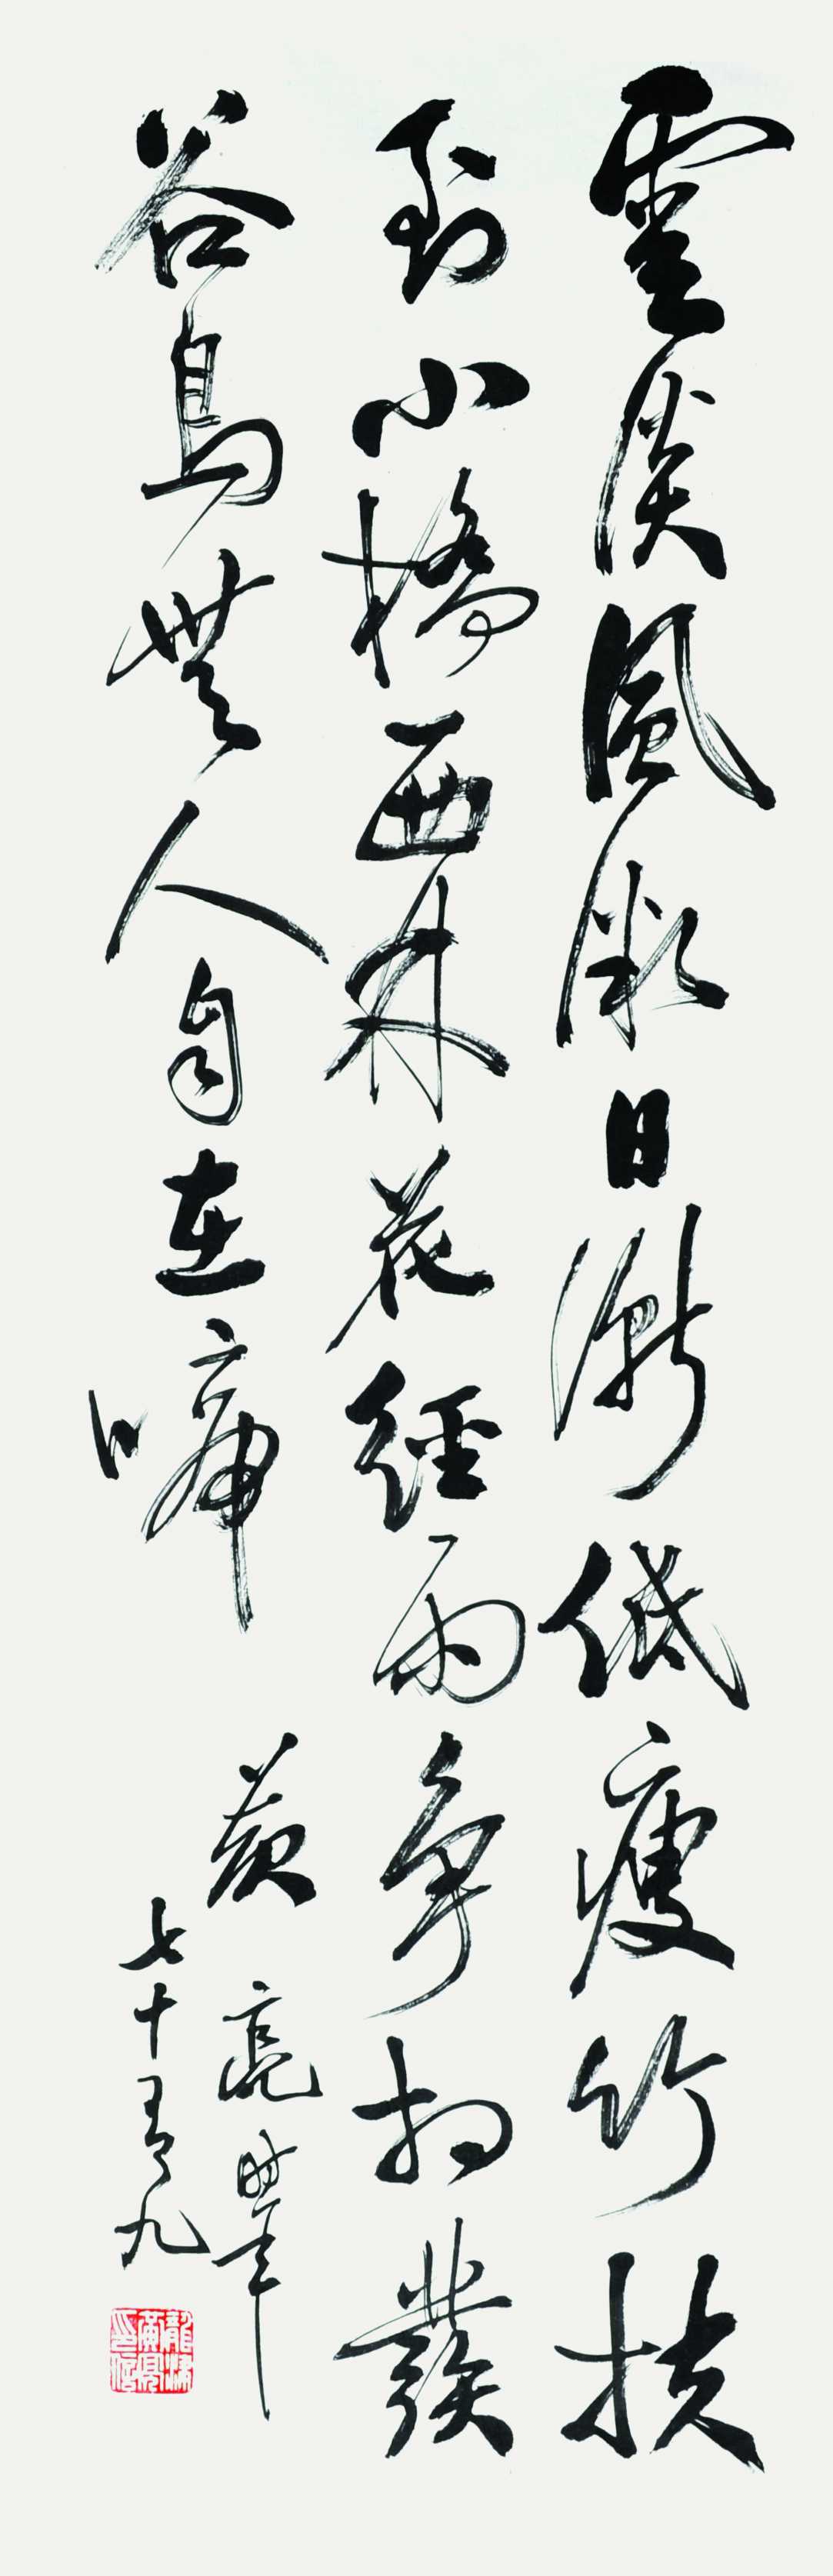 雲淡風微日漸低瘦竹扶
到小橋西林花經雨爭相發
谷鳥無人自在啼
黃亮時年
七十有九